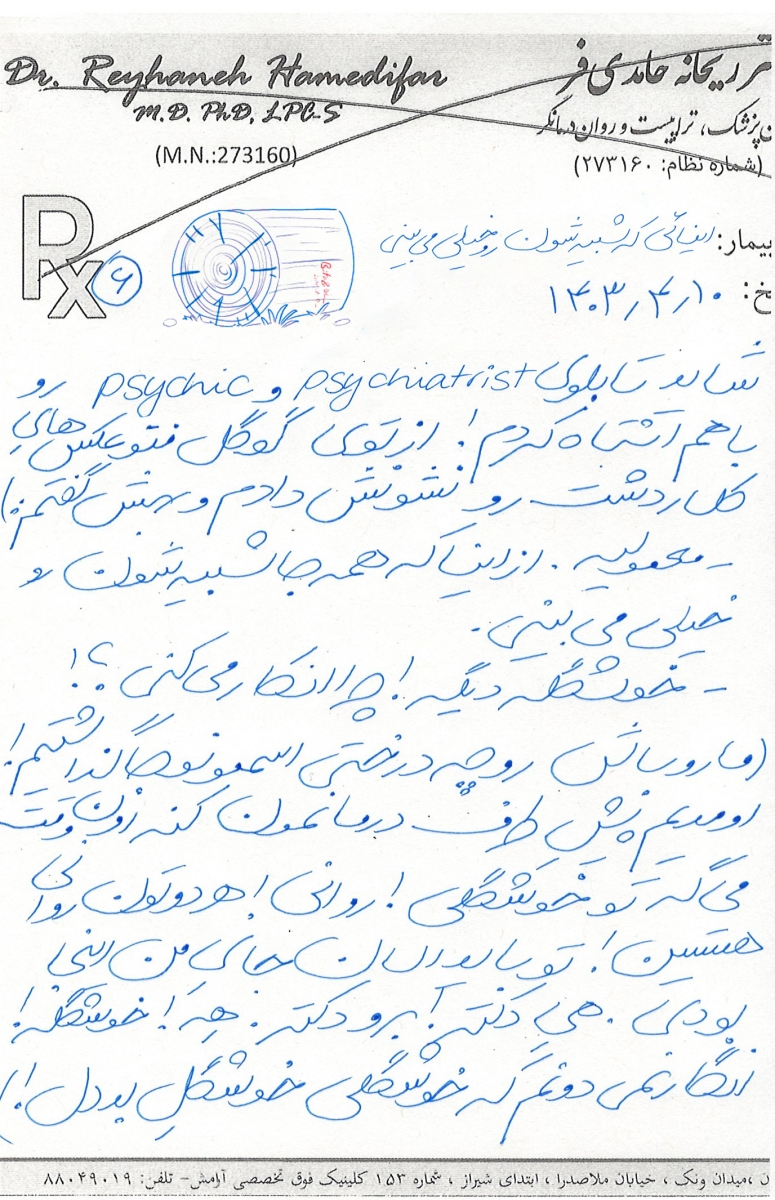 Dr. Reyhaneh Hamedifar
M.D. PhD, LPC-S
(M.N.:273160)
تر ریحانه حامدی فر
ن‌پزشک، تراپیست و روان درمانگر
(شماره نظام: ۲۷۳۱۶۰)
Rx
۶
بیمار: اینائی که شبیه شون رو خیلی می بینی
خ: ۱۴۰۳٫۴٫۱۰
شاید تابلوی psychiatrist و psychic رو
با هم اشتباه کردم! از توی گوگل فتو عکس های
کل ردشت رو نشونش دادم و بهش گفتم:)
- معمولیه. از اینا که همه جا شبیه شون رو
خیلی می بینی.
- خوشگله دیگه! چرا انکار می کنی؟!
(ما رو باش رو چه درختی اسمونو جا گذاشتیم!
اومدیم پیش طرف درمانمون کنه اون وقت
می گه تو خوشگلی! روانی! هر دوتون روانی
هستین! تو باید الان جای من اینجا
بودی. هی دکتر! برو دکتر. هه! خوشگله!
انگار نمی دونم که خوشگلی خوشگلِ بد دل!)
ن ،میدان ونک ، خیابان ملاصدرا ، ابتدای شیراز ، شماره ۱۵۳ کلینیک فوق تخصصی آرامش- تلفن: ۸۸۰۴۹۰۱۹